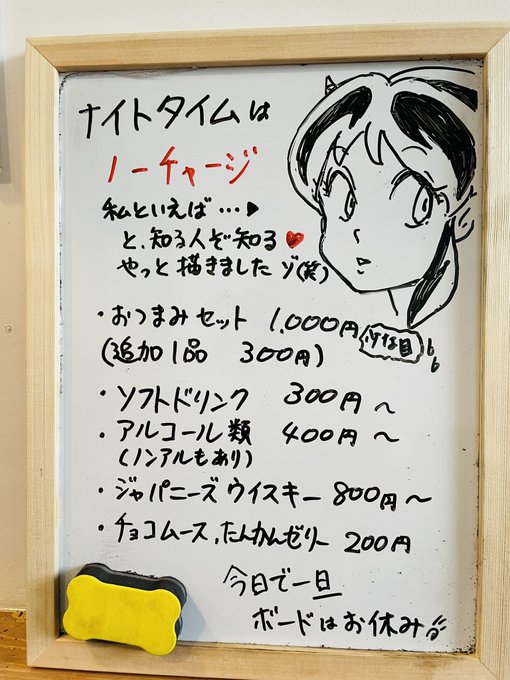 ナイトタイムは
ノーチャージ
私といえば…▶
と、知る人ぞ知る♥
やっと描きました ゾ(笑)
・おつまみセット 1,000円
(追加1品 300円)
・ソフトドリンク 300円〜
・アルコール類 400円〜
(ノンアルもあり)
・ジャパニーズウイスキー 800円〜
・チョコムース,たんかんゼリー 200円
今日で一旦
ボードはお休み